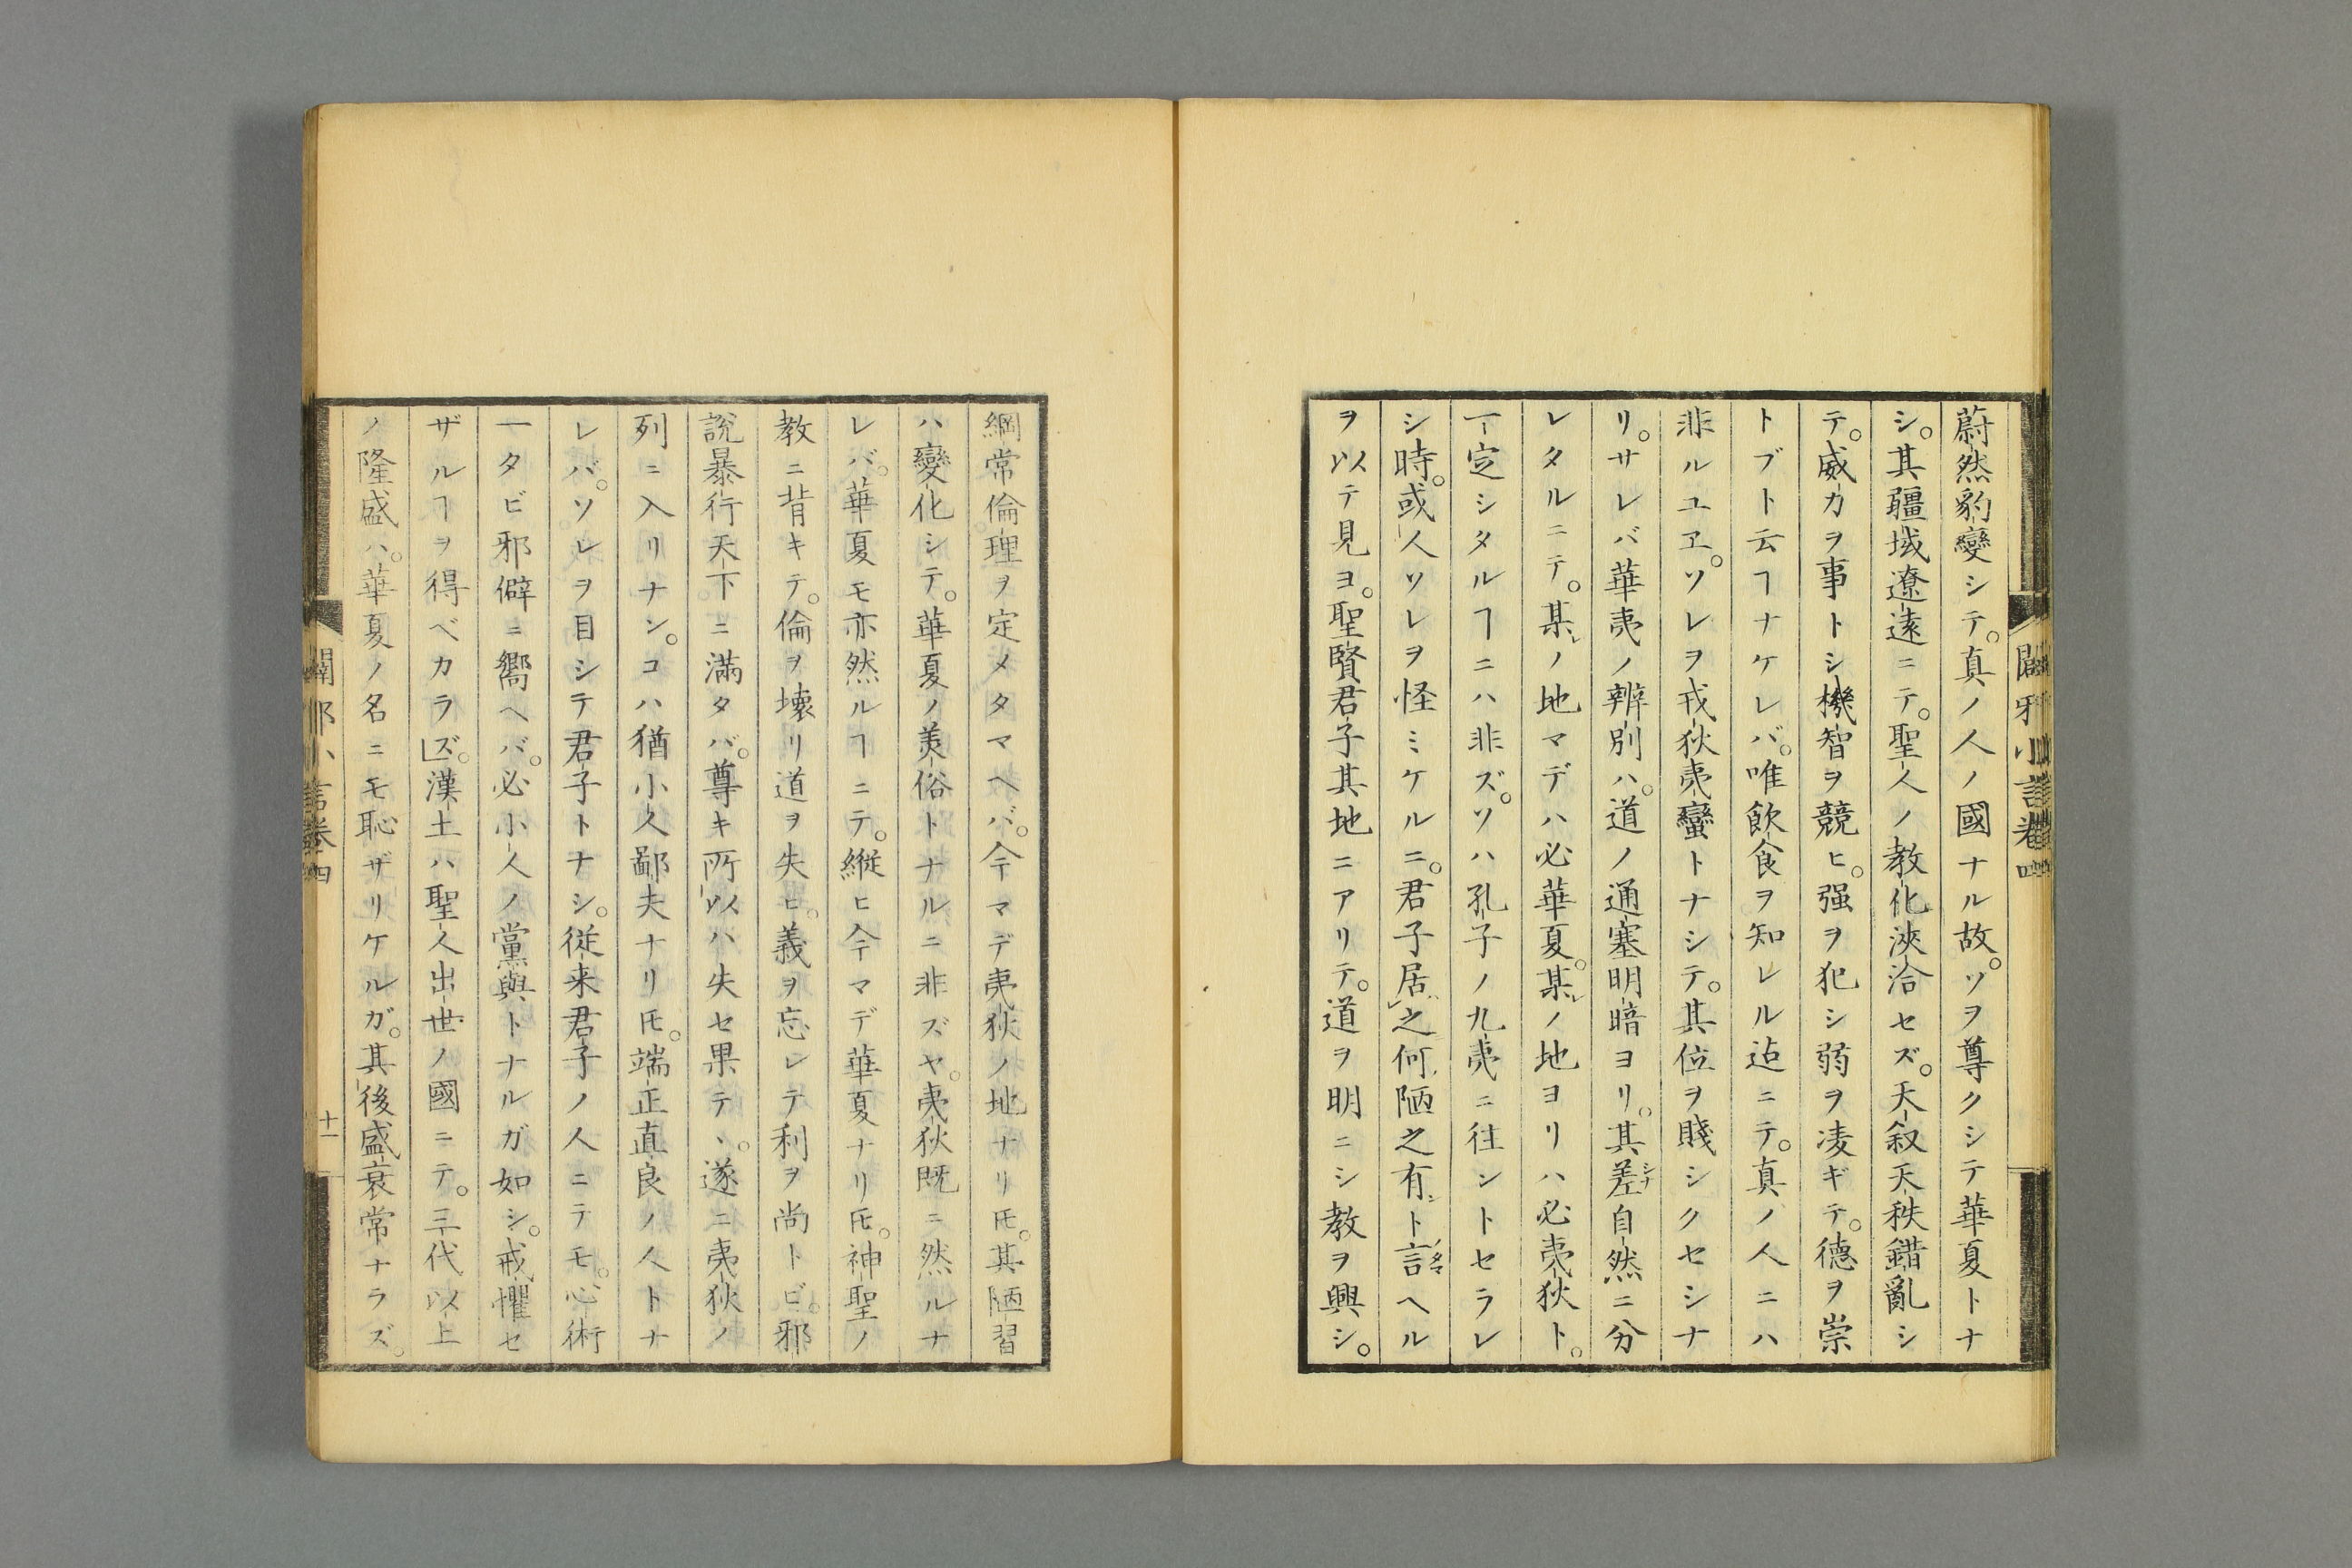 蔚然豹變シテ。真ノ人ノ國ナル故。ソヲ尊クシテ華夏トナ
シ。其疆域遼遠ニテ。聖人ノ教化浹洽セズ。天叙天秩錯亂シ
テ。威力ヲ事トシ機智ヲ競ヒ。强ヲ犯シ弱ヲ凌ギテ。德ヲ崇
トブト云ヿナケレバ。唯飲食ヲ知レル迠ニテ。真ノ人ニハ
非ルユヱ。ソレヲ戎狄夷蠻トナシテ。其位ヲ賤シクセシナ
リ。サレバ華夷ノ辨別ハ。道ノ通塞明暗ヨリ。其差シナ自然ニ分
レタルニテ。某レノ地マデハ必華夏。某レノ地ヨリハ必夷狄ト。
一定シタルヿニハ非ズ。ソハ孔子ノ九夷ニ往ントセラレ
シ時。或人ソレヲ怪ミケルニ。君子居之何陋之有ト言ノタマヘル
ヲ以テ見ヨ。聖賢君子其地ニアリテ。道ヲ明ニシ教ヲ興シ。
綱常倫理ヲ定メタマヘバ。今マデ夷狄ノ地ナリ𪜈。其陋習
ハ變化シテ。華夏ノ美俗トナルニ非ズヤ。夷狄既ニ然ルナ
レバ。華夏モ亦然ルヿニテ。縦ヒ今マデ華夏ナリ𪜈。神聖ノ
教ニ背キテ。倫ヲ壊リ道ヲ失ヒ。義ヲ忘レテ利ヲ尚トビ。邪
說暴行天下ニ滿タバ。尊キ所以ハ失セ果テヽ。遂ニ夷狄ノ
列ニ入リナン。コハ猶小人鄙夫ナリ𪜈。端正直良ノ人トナ
レバ。ソレヲ目シテ君子トナシ。従来君子ノ人ニテモ。心術
一タビ邪僻ニ嚮ヘバ。必小人ノ黨與トナルガ如シ。戒懼セ
ザルヿヲ得ベカラズ。」漢土ハ聖人出世ノ國ニテ。三代以上
ノ隆盛ハ。華夏ノ名ニモ恥ザリケルガ。其後盛衰常ナラズ。
闢邪小言卷四
十一